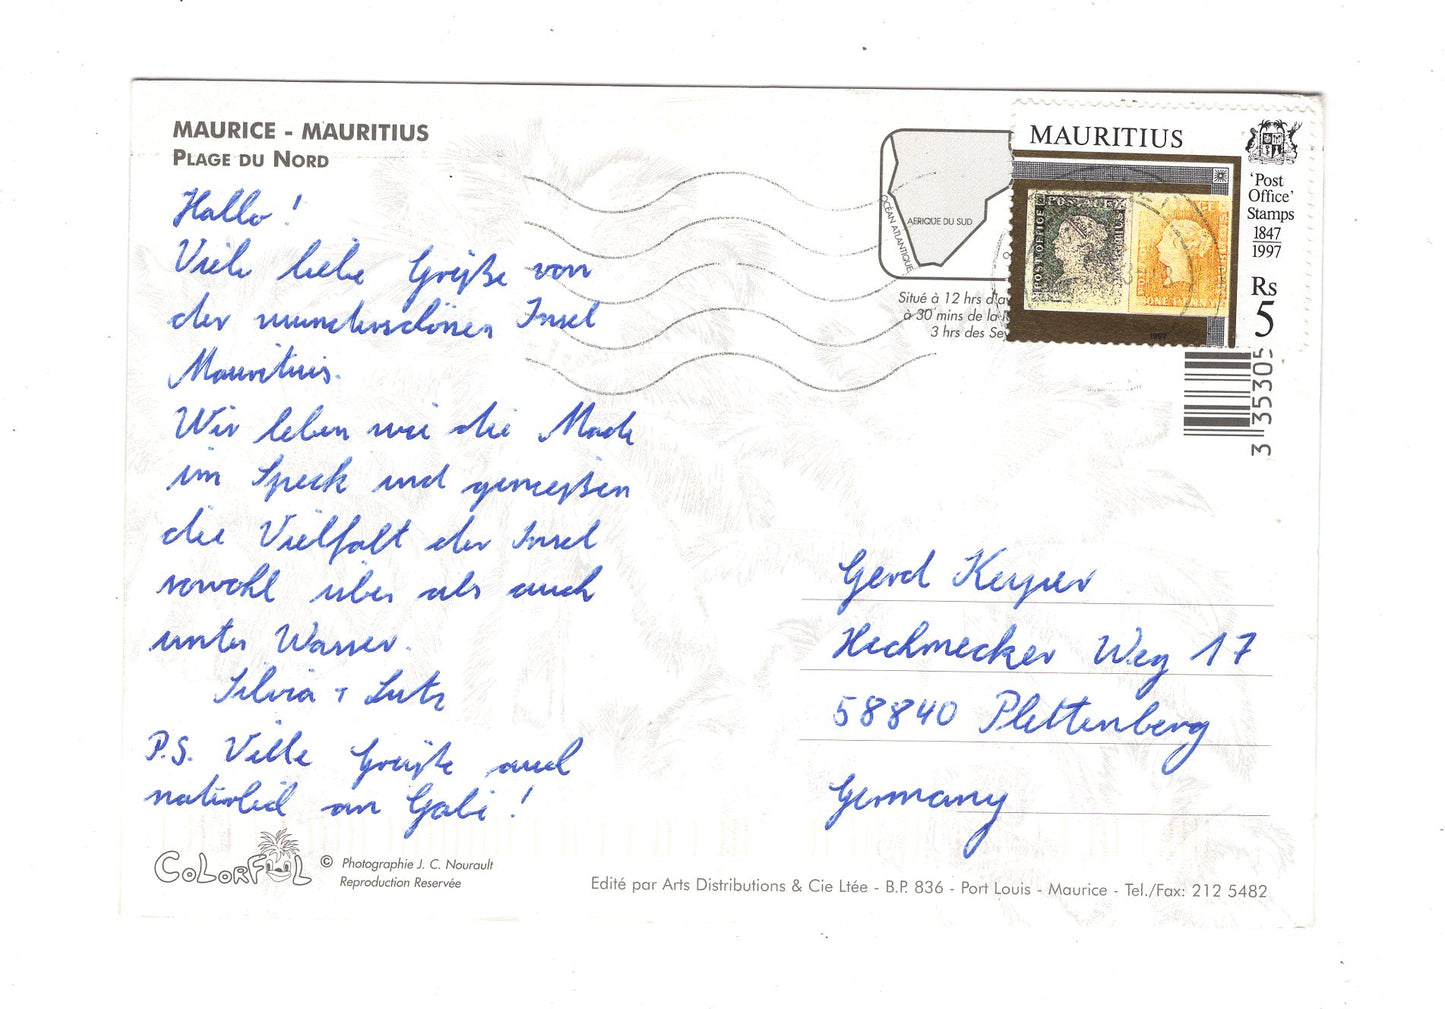 MAURICE - MAURITIUS
PLAGE DU NORD
Hallo !
Viele liebe Grüße von
der wunderschönen Insel
Mauritius.
Wir leben wie die Made
im Speck und genießen
die Vielfalt der Insel
sowohl über als auch
unter Wasser.
Silvia + Lutz
P.S. Viele Grüße auch
natürlich an Gabi !
COLORFUL
© Photographie J. C. Nourault
Reproduction Reservée
OCÉAN ATLANTIQUE
AFRIQUE DU SUD
Situé à 12 hrs d'av
à 30 mins de la
3 hrs des Sey
MAURITIUS
'Post
Office'
Stamps
1847
1997
Rs
5
POST OFFICE
POSTAGE
MAURITIUS
ONE PENNY
1997
3 35305
Gerd Keyper
Hechmecker Weg 17
58840 Plettenberg
Germany
Edité par Arts Distributions & Cie Ltée - B.P. 836 - Port Louis - Maurice - Tel./Fax: 212 5482